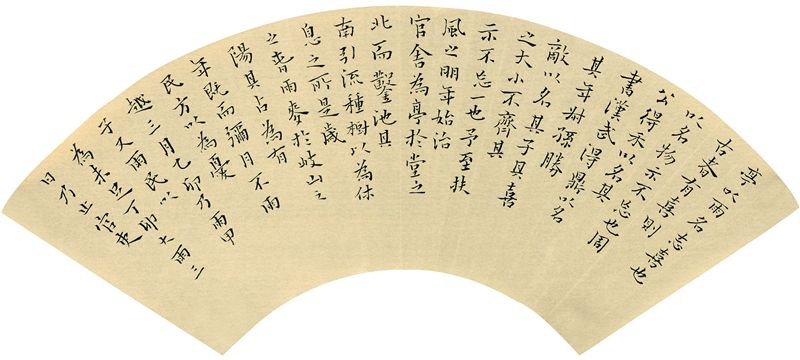 亭以雨名志喜也
古者有喜則
以名物示不忘也周
公得禾以名其
書漢武得鼎以名
其年叔孫勝
敵以名其子其喜
之大小不齊其
示不忘一也予至扶
風之明年始治
官舍為亭於堂之
北而鑿池其
南引流種樹以為休
息之所是歲
之春雨麥於岐山之
陽其占為有
年既而彌月不雨
民方以為憂
越三月乙卯乃雨甲
子又雨民以
為未足丁卯大雨三
日乃止官吏